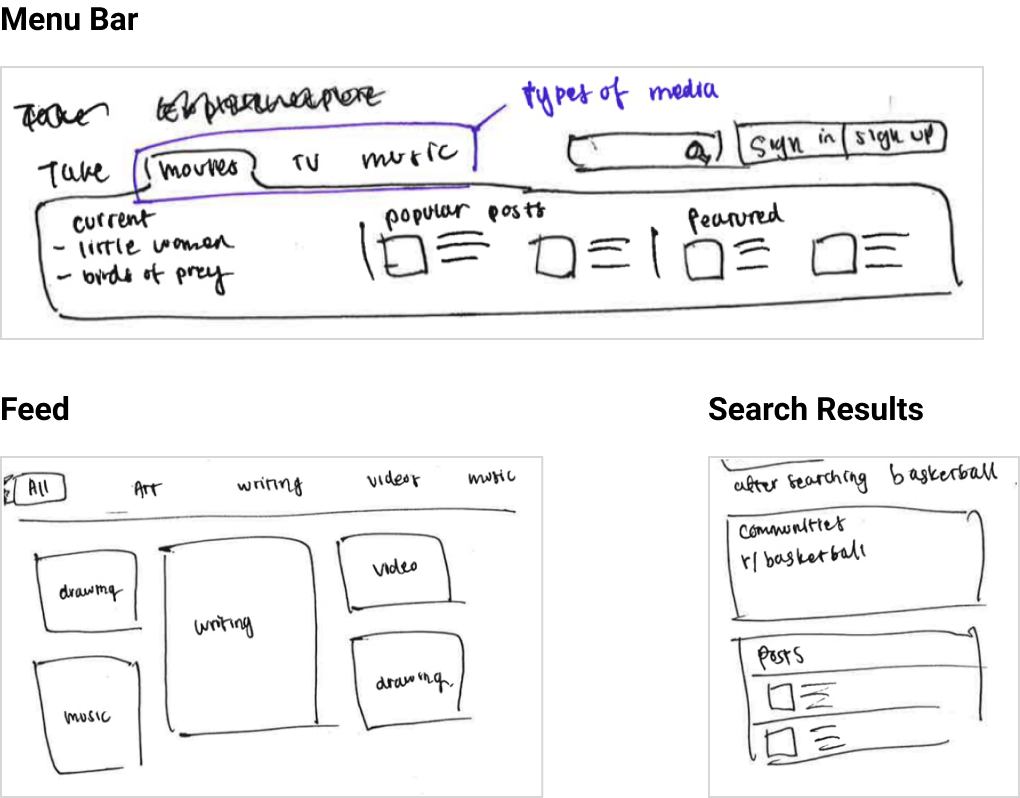 Menu Bar
types of media
Take movies TV music
Sign in sign up
current
- little women
- birds of prey
popular posts
Featured
Feed
All Art writing videos music
drawing
writing
video
music
drawing
Search Results
after searching basketball
communities
r/basketball
Posts